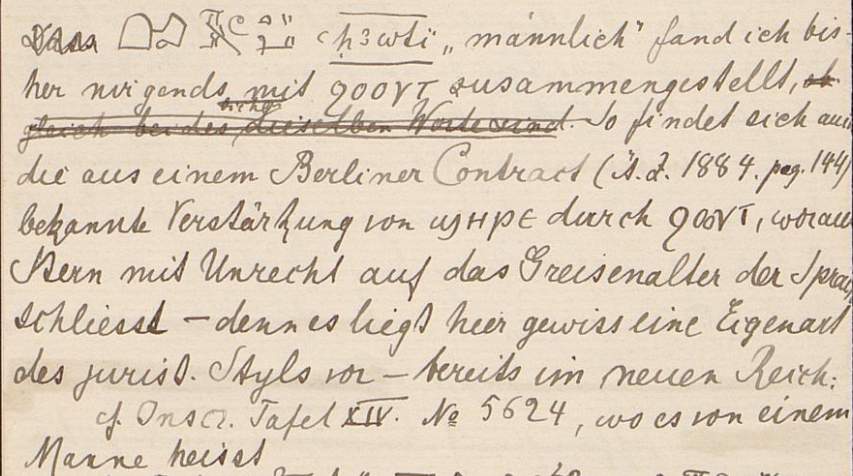 Das ḥ3wtï „männlich" fand ich bis-
her nirgends mit ϩοουτ zusammengestellt, ob
gleich beides dieselben Worte sind. So findet sich auch
die aus einem Berliner Contract (Ä.Z. 1884. pag. 144)
bekannte Verstärkung von ϣηρε durch ϩοουτ, worau
Stern mit Unrecht auf das Greisenalter der Sprac
schliesst – denn es liegt hier gewiss eine Eigenart
des jurist. Styls vor – bereits im neuen Reich:
cf. Inscr. Tafel XIV. № 5624, wo es von einem
Manne heisst